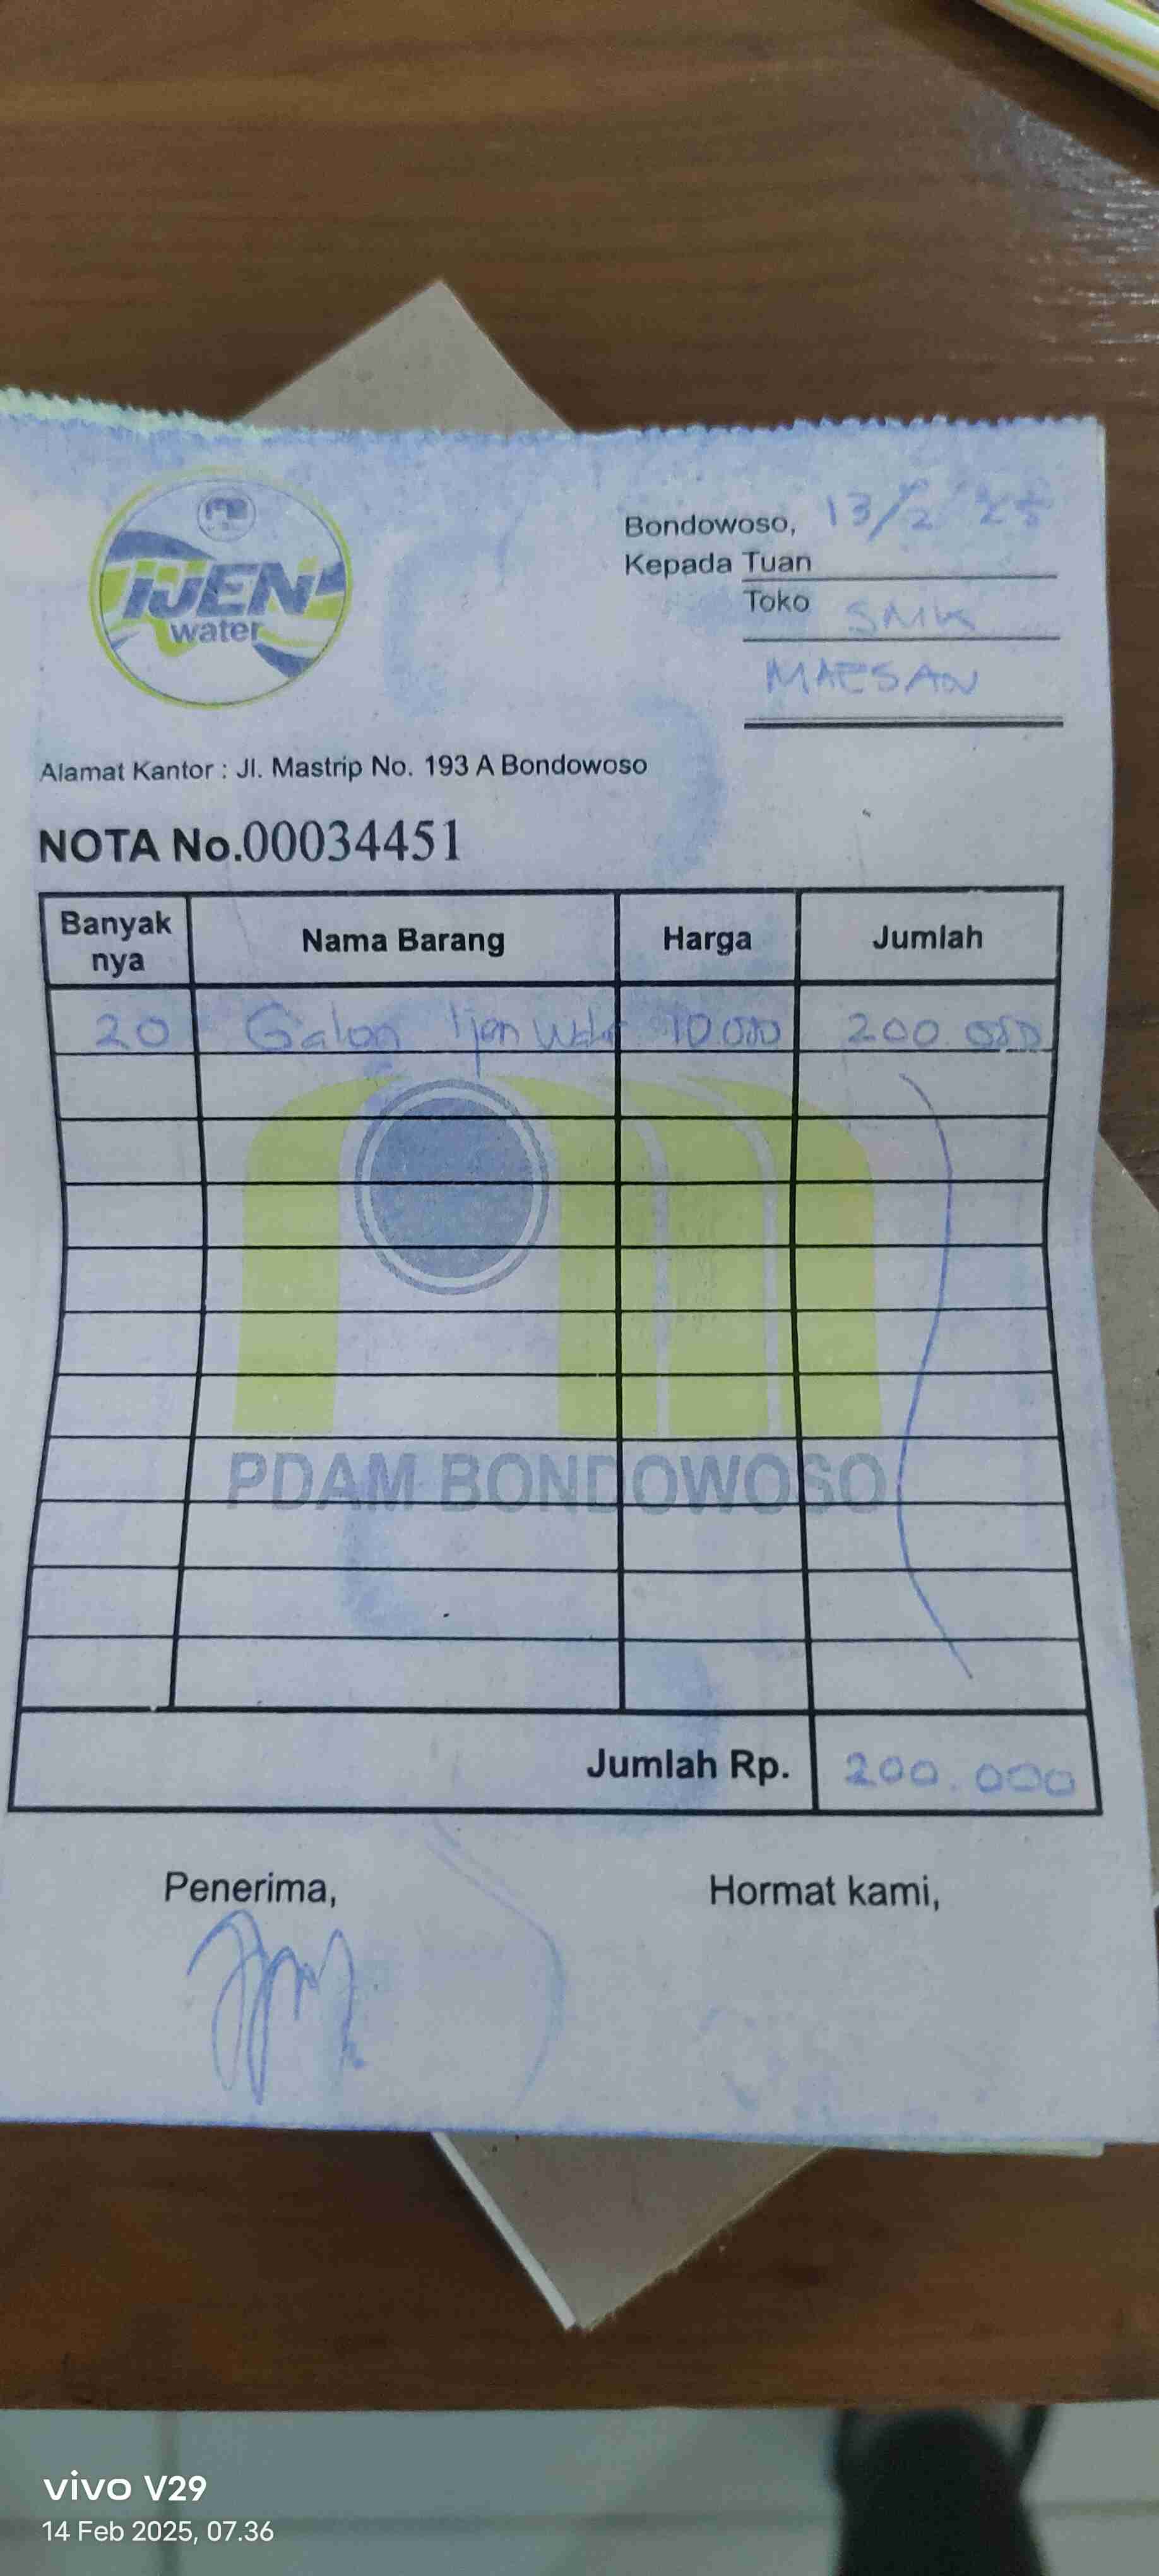 IJEN
water
Bondowoso, 13/2 '25
Kepada Tuan
Toko SMK
MAESAN
Alamat Kantor : Jl. Mastrip No. 193 A Bondowoso
NOTA No.00034451
Banyak nya Nama Barang Harga Jumlah
20 Galon Ijen Water 10.000 200.000
PDAM BONDOWOSO
Jumlah Rp. 200.000
Penerima, Hormat kami,
vivo V29
14 Feb 2025, 07.36